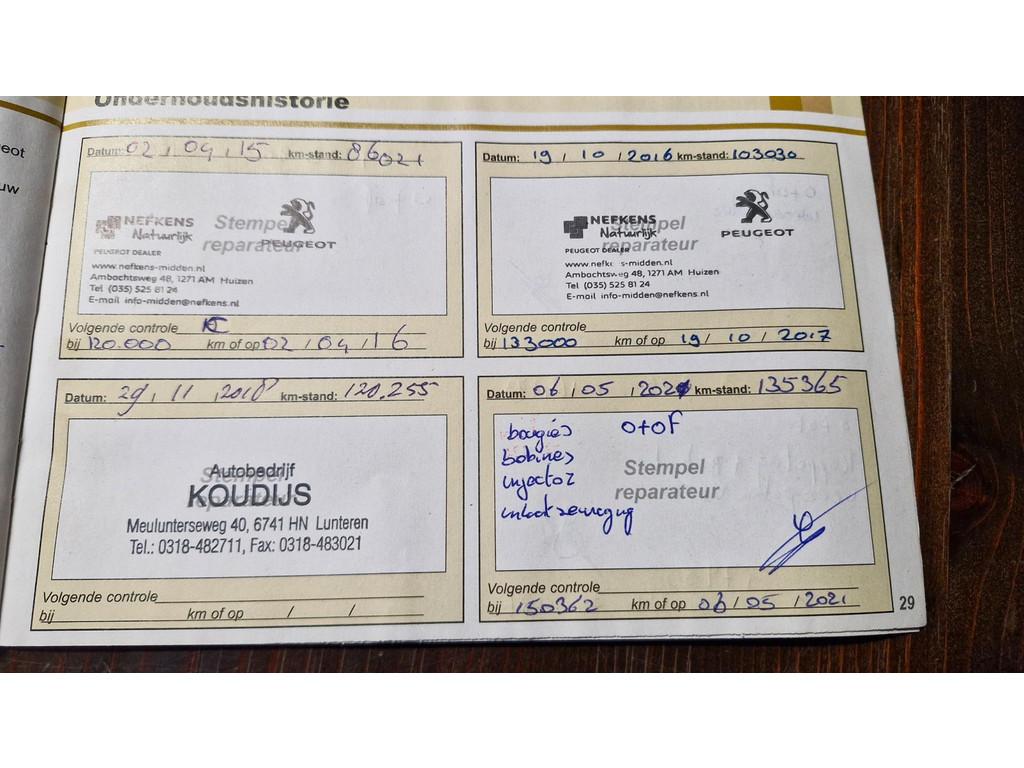 Onderhoudshistorie
eot
uw
Datum: 02 / 04 / 15 km-stand: 86021
NEFKENS
Natuurlijk
Stempel
reparateur
PEUGEOT
PEUGEOT DEALER
www.nefkens-midden.nl
Ambachtsweg 48, 1271 AM Huizen
Tel (035) 525 81 24
E-mail info-midden@nefkens.nl
Volgende controle
bij 120.000 km of op 02 / 04 / 16
Datum: 19 / 10 / 2016 km-stand: 103030
NEFKENS
Natuurlijk
Stempel
reparateur
PEUGEOT
PEUGEOT DEALER
www.nefkens-midden.nl
Ambachtsweg 48, 1271 AM Huizen
Tel (035) 525 81 24
E-mail info-midden@nefkens.nl
Volgende controle
bij 133000 km of op 19 / 10 / 2017
Datum: 29 / 11 / 2018 km-stand: 120.255
Stempel
reparateur
Autobedrijf
KOUDIJS
Meulunterseweg 40, 6741 HN Lunteren
Tel.: 0318-482711, Fax: 0318-483021
Volgende controle
bij km of op / /
Datum: 06 / 05 / 202 km-stand: 135365
bougies O+OF
bobines
injector
inlaatreiniging
Stempel
reparateur
Volgende controle
bij 150362 km of op 06 / 05 / 2021
29